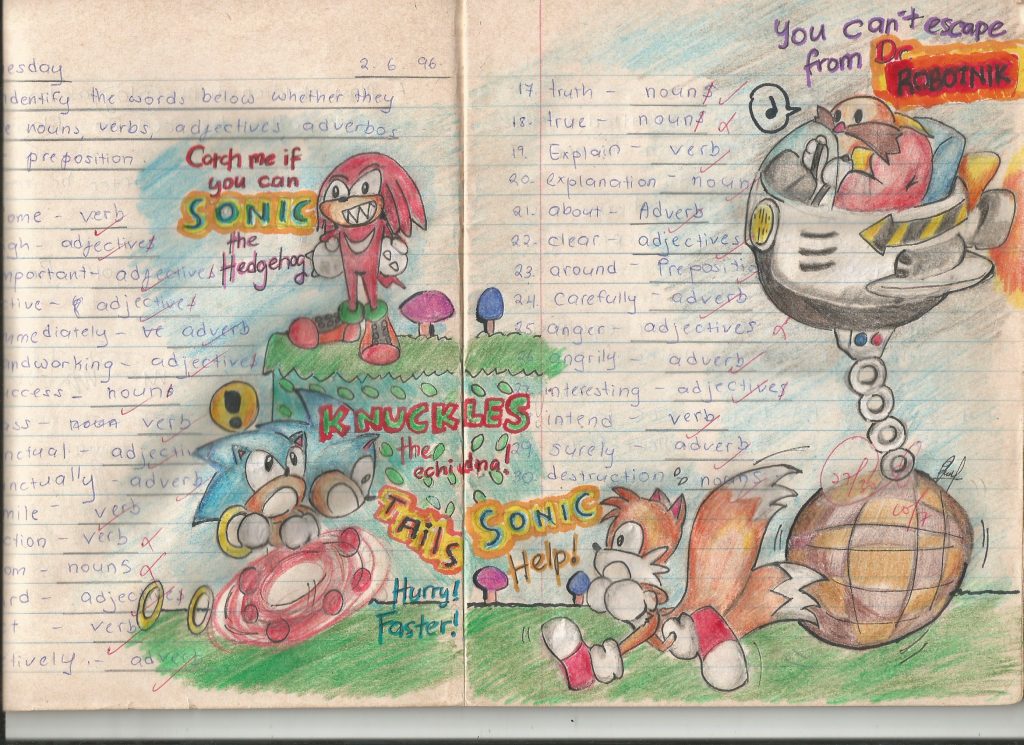 esday 2. 6. 96.
identify the words below whether they
e nouns, verbs, adjectives adverbos
preposition.
Catch me if
you can
SONIC
the
Hedgehog
ome - verb
gh - adjectives
mportant - adjectives
tive - adjectives
mmediately - adverb
ndworking - adjectives
ccess - nouns
ss - noun verb
nctual - adjectiv
nctually - adverb
mile - verb
ction - verb
om - nouns
rd - adjectives
t - verb
ctively. - adverb
!
KNUCKLES
the
echidna!
TAILS
Hurry!
Faster!
You can't escape
from Dr.
ROBOTNIK
17. truth - nouns
18. true - nouns
19. Explain - verb
20. explanation - noun
21. about - Adverb
22. clear - adjectives
23. around - Prepositio
24. carefully - adverb
25. anger - adjectives
26. angrily - adverb
27. interesting - adjectives
28. intend - verb
29. surely - adverb
30. destruction - nouns
SONIC
Help!